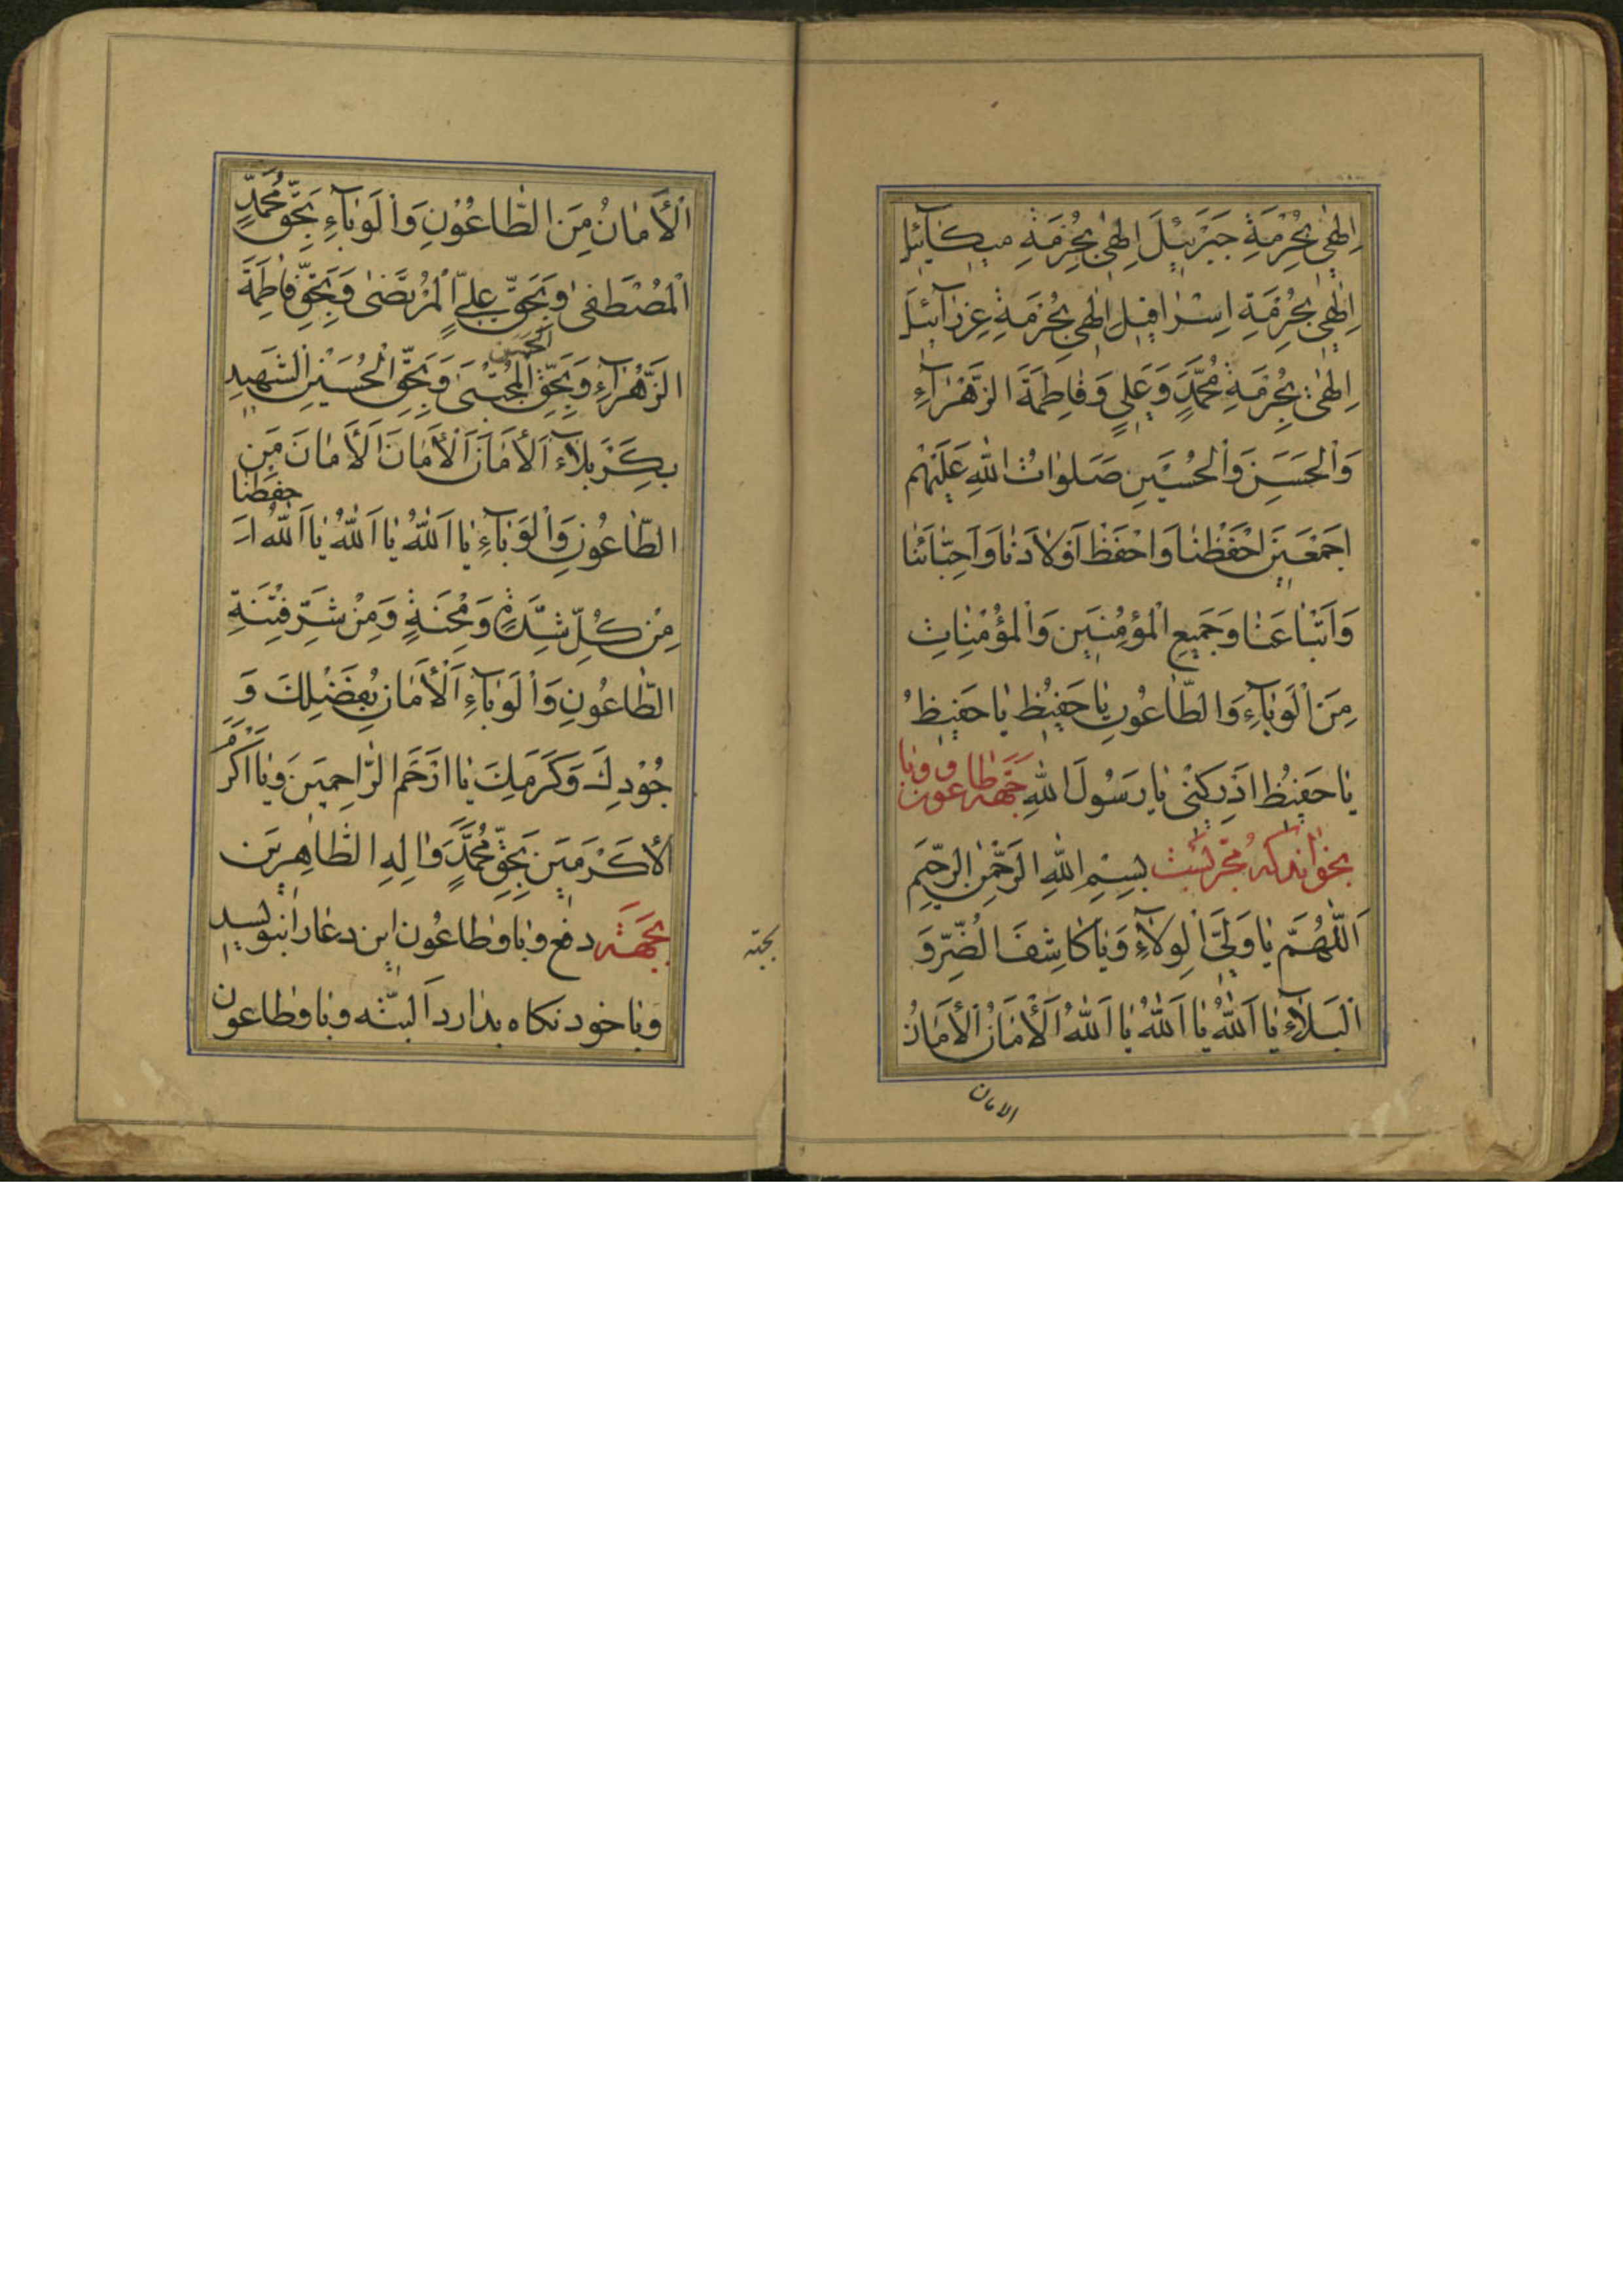 اِلٰهٖى بِحُرْمَةِ جَبْرَئٖيلَ اِلٰهٖى بِحُرْمَةِ مٖيكٰآئٖيلَ
اِلٰهٖى بِحُرْمَةِ اِسْرٰافٖيلَ اِلٰهٖى بِحُرْمَةِ عِزْرٰآئٖيلَ
اِلٰهٖى بِحُرْمَةِ مُحَمَّدٍ وَعَلِىٍّ وَفٰاطِمَةَ الزَّهْرٰآءِ
وَالْحَسَنِ وَالْحُسَيْنِ صَلَوٰاتُ اللّٰهِ عَلَيْهِمْ
اَجْمَعٖينَ اِحْفَظْنٰا وَاحْفَظْ اَوْلٰادَنٰا وَاَحِبّٰائَنٰا
وَاَتْبٰاعَنٰا وَجَمٖيعِ الْمُؤْمِنٖينَ وَالْمُؤْمِنٰاتِ
مِنَ الْوَبٰآءِ وَالطّٰاعُونِ يٰا حَفٖيظُ يٰا حَفٖيظُ
يٰا حَفٖيظُ اَدْرِكْنٖى يٰا رَسُولَ اللّٰهِ جهة طاعون و وبا
بخوانند كه مجرّبست بِسْمِ اللّٰهِ الرَّحْمٰنِ الرَّحٖيمِ
اَللّٰهُمَّ يٰا وَلِىَّ الْوِلٰآءِ وَيٰا كٰاشِفَ الضُّرِّ وَ
الْبَلٰآءِ يٰا اَللّٰهُ يٰا اَللّٰهُ يٰا اَللّٰهُ اَلْاَمٰانُ اَلْاَمٰانُ
الامان
اَلْاَمٰانُ مِنَ الطّٰاعُوْنِ وَالْوَبٰآءِ بِحَقِّ مُحَمَّدٍ
الْمُصْطَفٰى وَبِحَقِّ عَلِىٍّ الْمُرْتَضٰى وَبِحَقِّ فٰاطِمَةَ
الزَّهْرٰآءِ وَبِحَقِّ الْحَسَنِ الْمُجْتَبٰى وَبِحَقِّ الْحُسَيْنِ الشَّهٖيدِ
بِكَرْبَلٰآءَ اَلْاَمٰانَ اَلْاَمٰانَ اَلْاَمٰانَ مِنَ
الطّٰاعُونِ وَالْوَبٰآءِ يٰا اَللّٰهُ يٰا اَللّٰهُ يٰا اَللّٰهُ احفظنا
مِنْ كُلِّ شِدَّةٍ وَمِحْنَةٍ وَمِنْ شَرِّ فِتْنَةِ
الطّٰاعُونِ وَالْوَبٰآءِ اَلْاَمٰانِ بِفَضْلِكَ وَ
جُوْدِكَ وَكَرَمِكَ يٰا اَرْحَمَ الرّٰاحِمٖينَ وَيٰا اَكْرَمَ
الْاَكْرَمٖينَ بِحَقِّ مُحَمَّدٍ وَاٰلِهِ الطّٰاهِرٖينَ
بجهة دفع وبا وطاعون اين دعا را بنويسد
وبا خود نكاه بدارد البتّه وبا وطاعون
بجهة